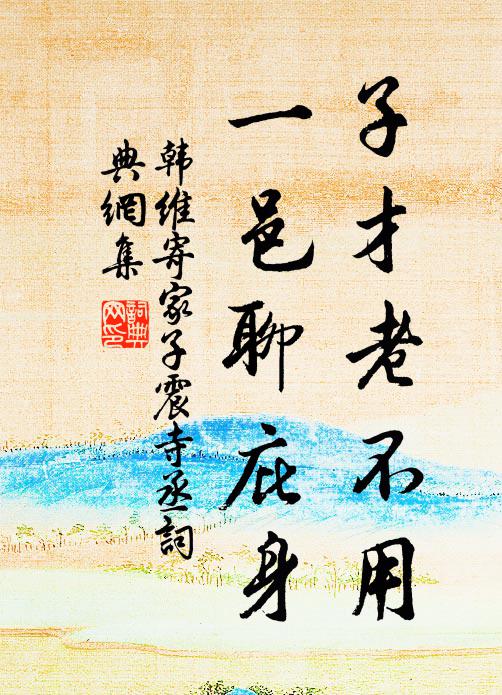 子才老不用
一邑聊庇身
韩维寄家子震寺丞詞
典網集
詞典
网印